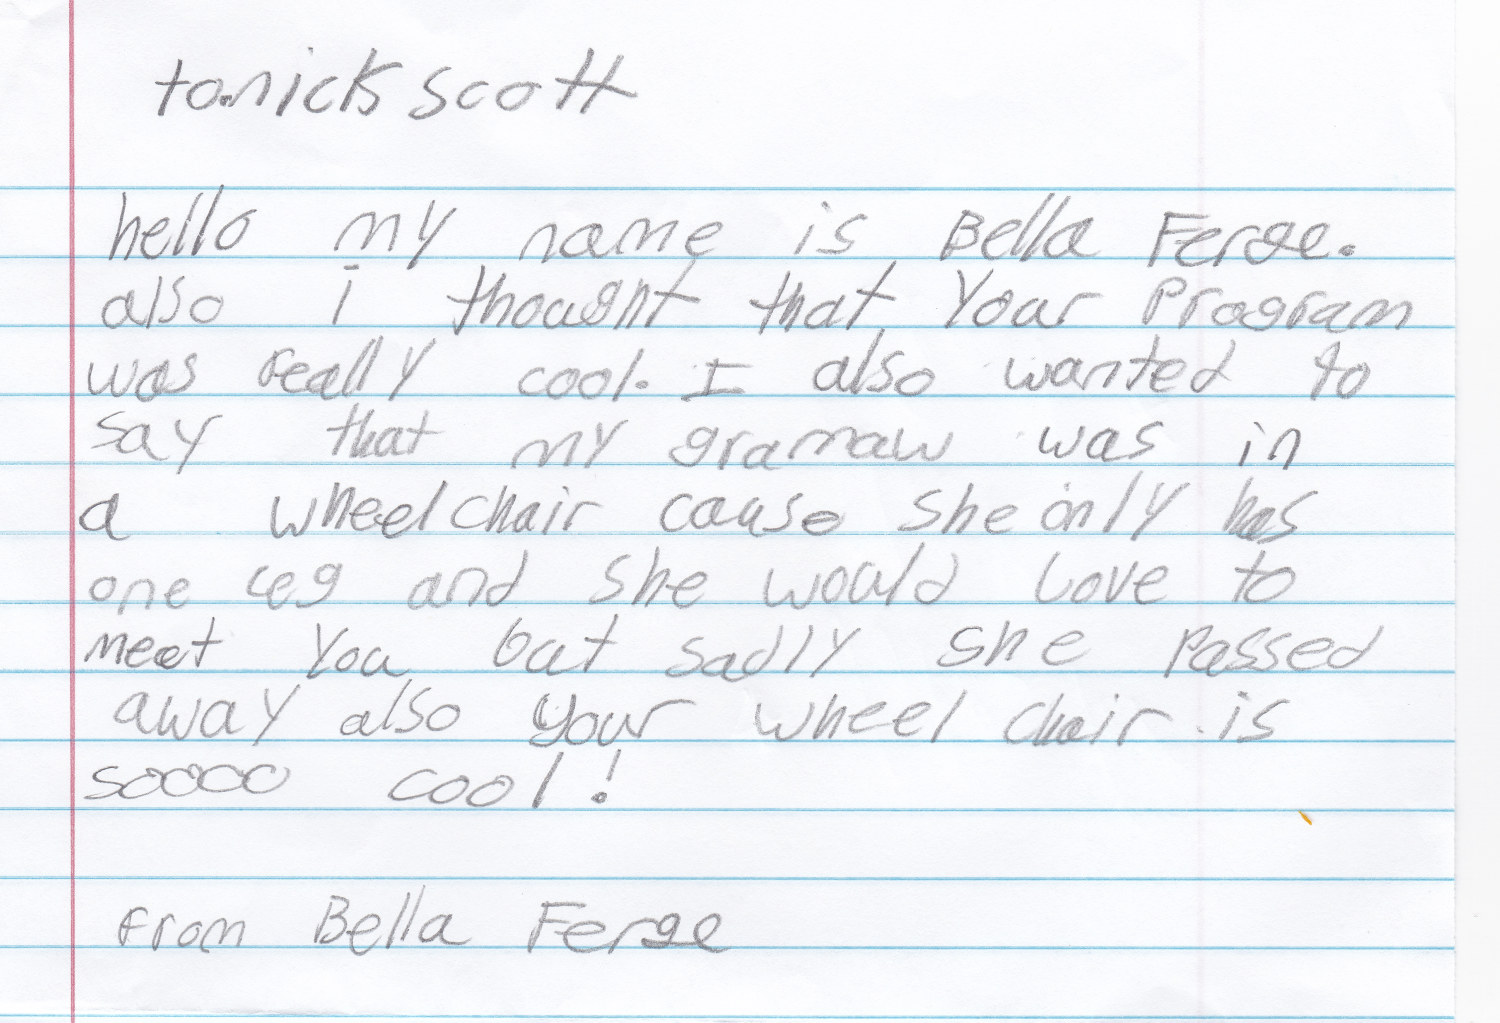 to.nick scott
hello my name is Bella Ferge.
also i thought that Your Program
was really cool. I also wanted to
say that my gramaw was in
a wheelchair cause she only has
one leg and she would love to
meet You but sadly she passed
away also your wheel chair is
soooo cool!
from Bella Ferge